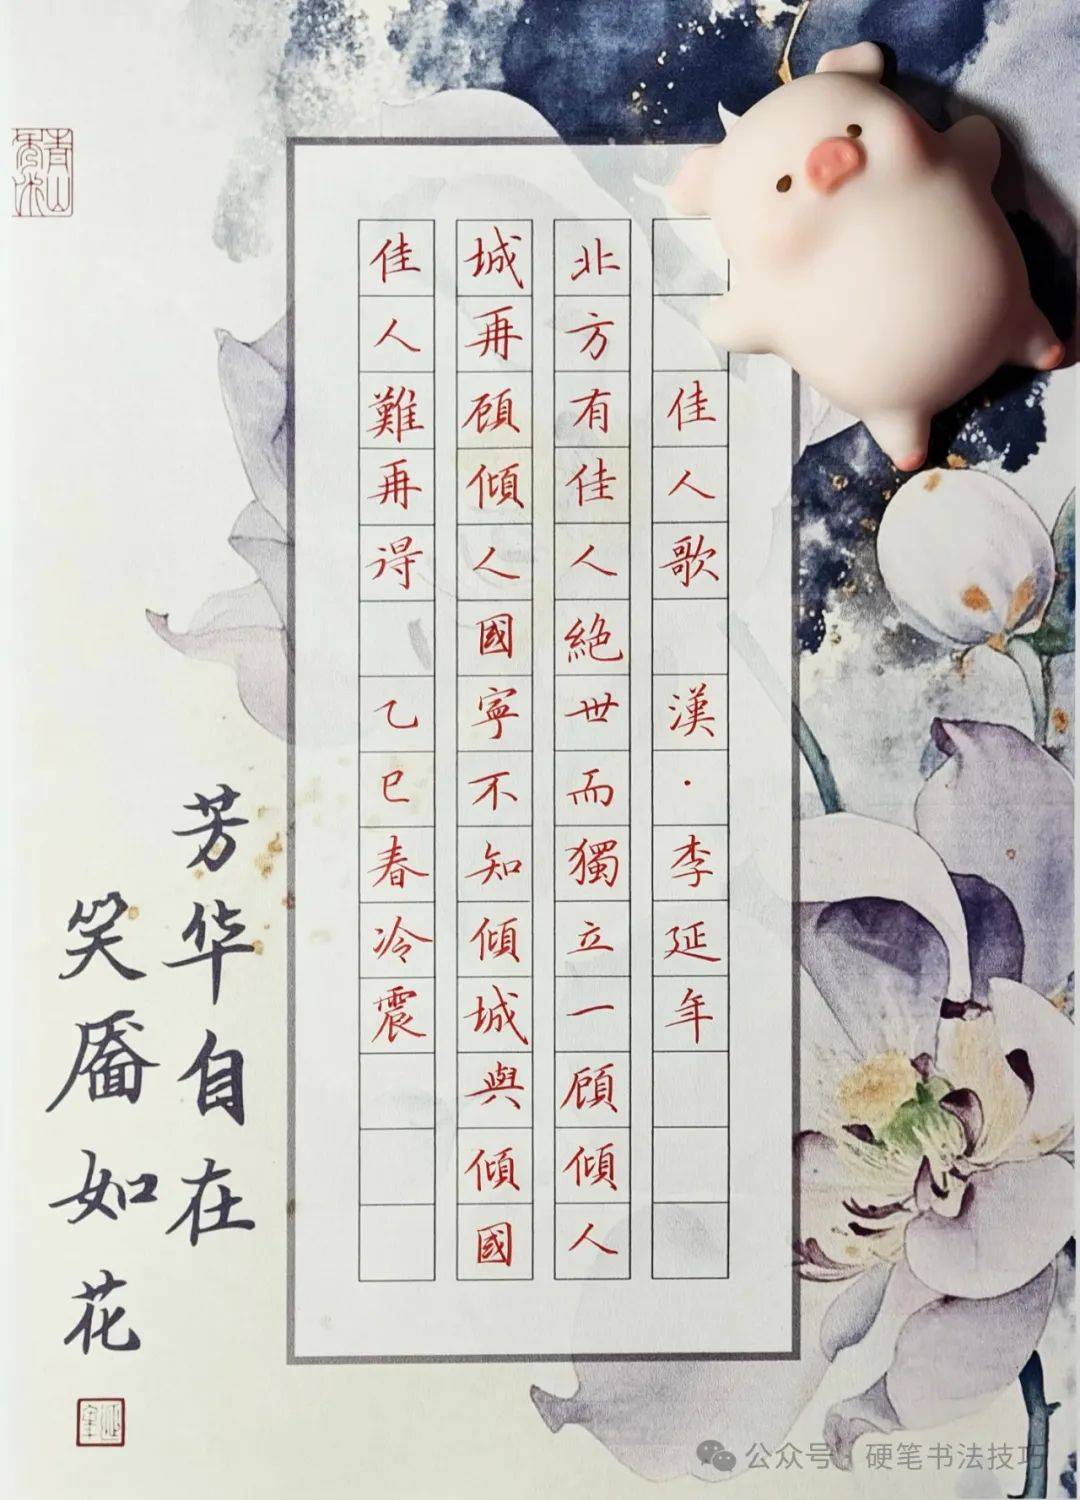 佳人歌 漢·李延年
北方有佳人絕世而獨立一顧傾人
城再顧傾人國寧不知傾城與傾國
佳人難再得 乙巳春冷震
芳华自在
笑靥如花
公众号·硬笔书法技巧